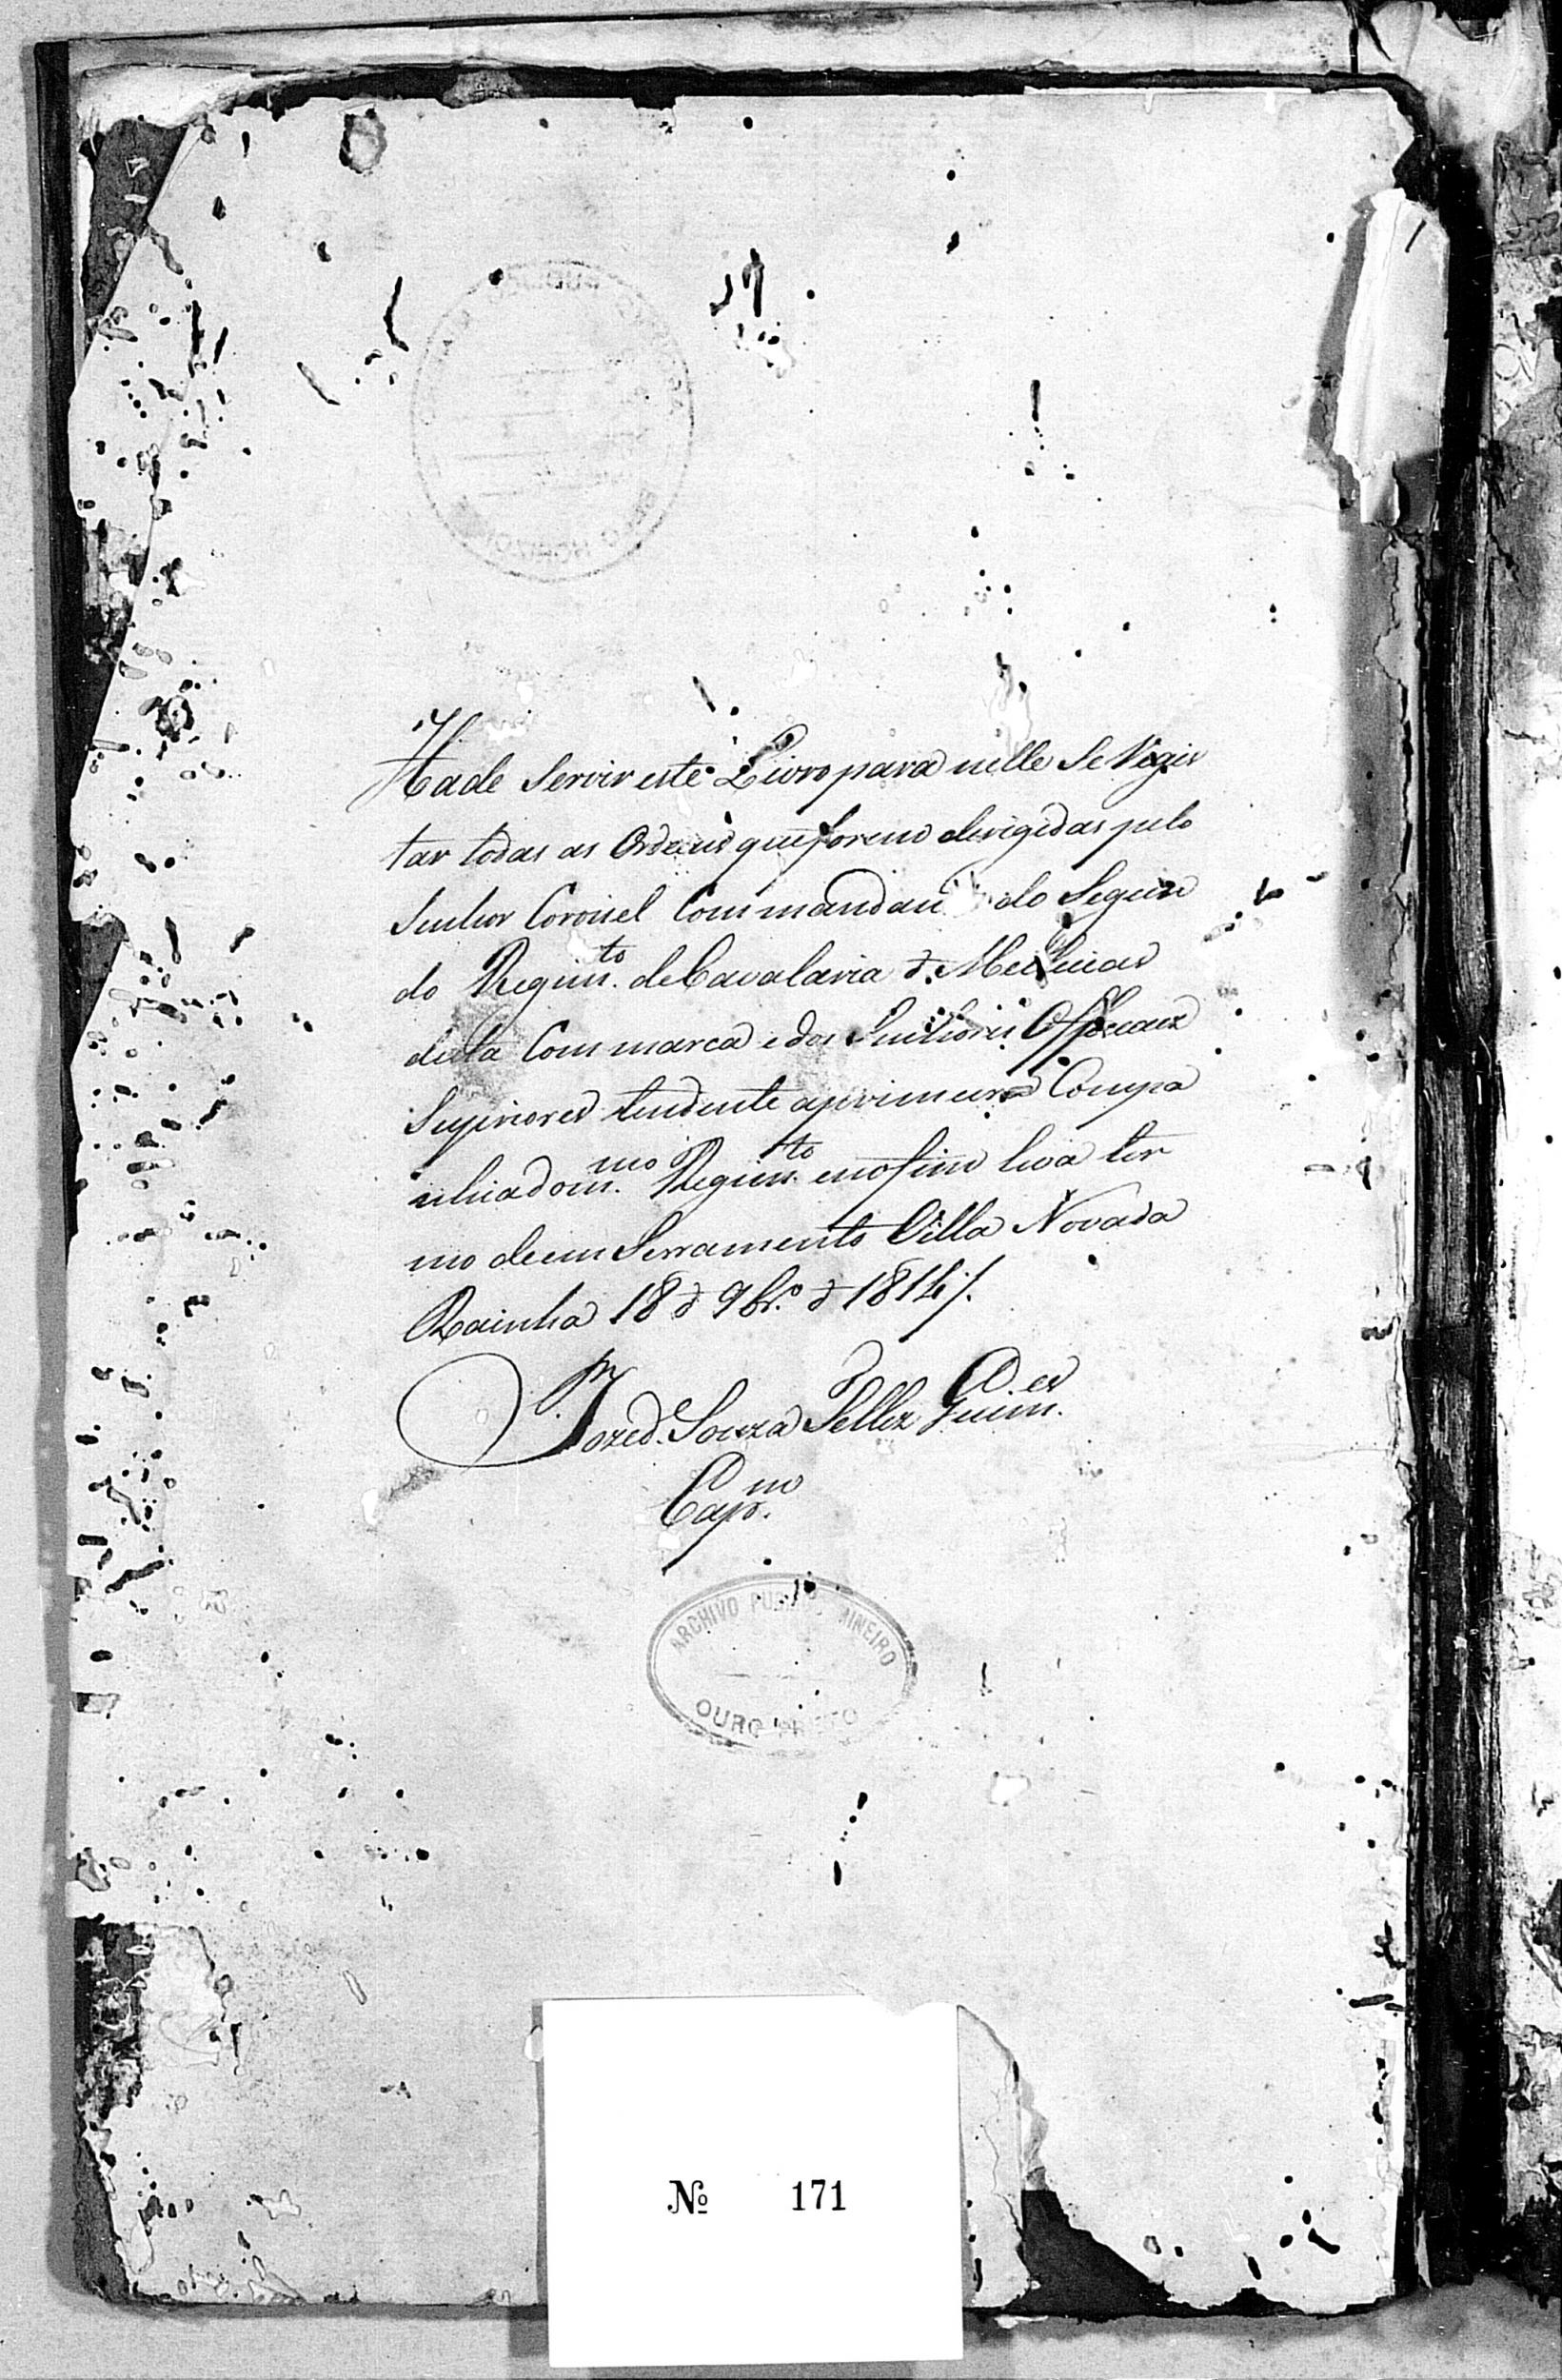 Hade Servir este Livro para nelle Se Regis
tar todas as Ordens que forem derigidas pelo
Senhor Coronel Commandan do Segun
do Regim.to de Cavalaria d. Melicias
desta Commarca e dos Senhores Officaez
Superiores tendente aprimeira Compa
nhia do m.mo Regim.to e no fim leva ter
mo de em Serramento Villa Nova da
Rainha 18 d 9br.o d 1814 /.
Joze d. Souza Tellez Guim.es
Cap.m
ARCHIVO PUBLICO MINEIRO
OURO PRETO
№ 171